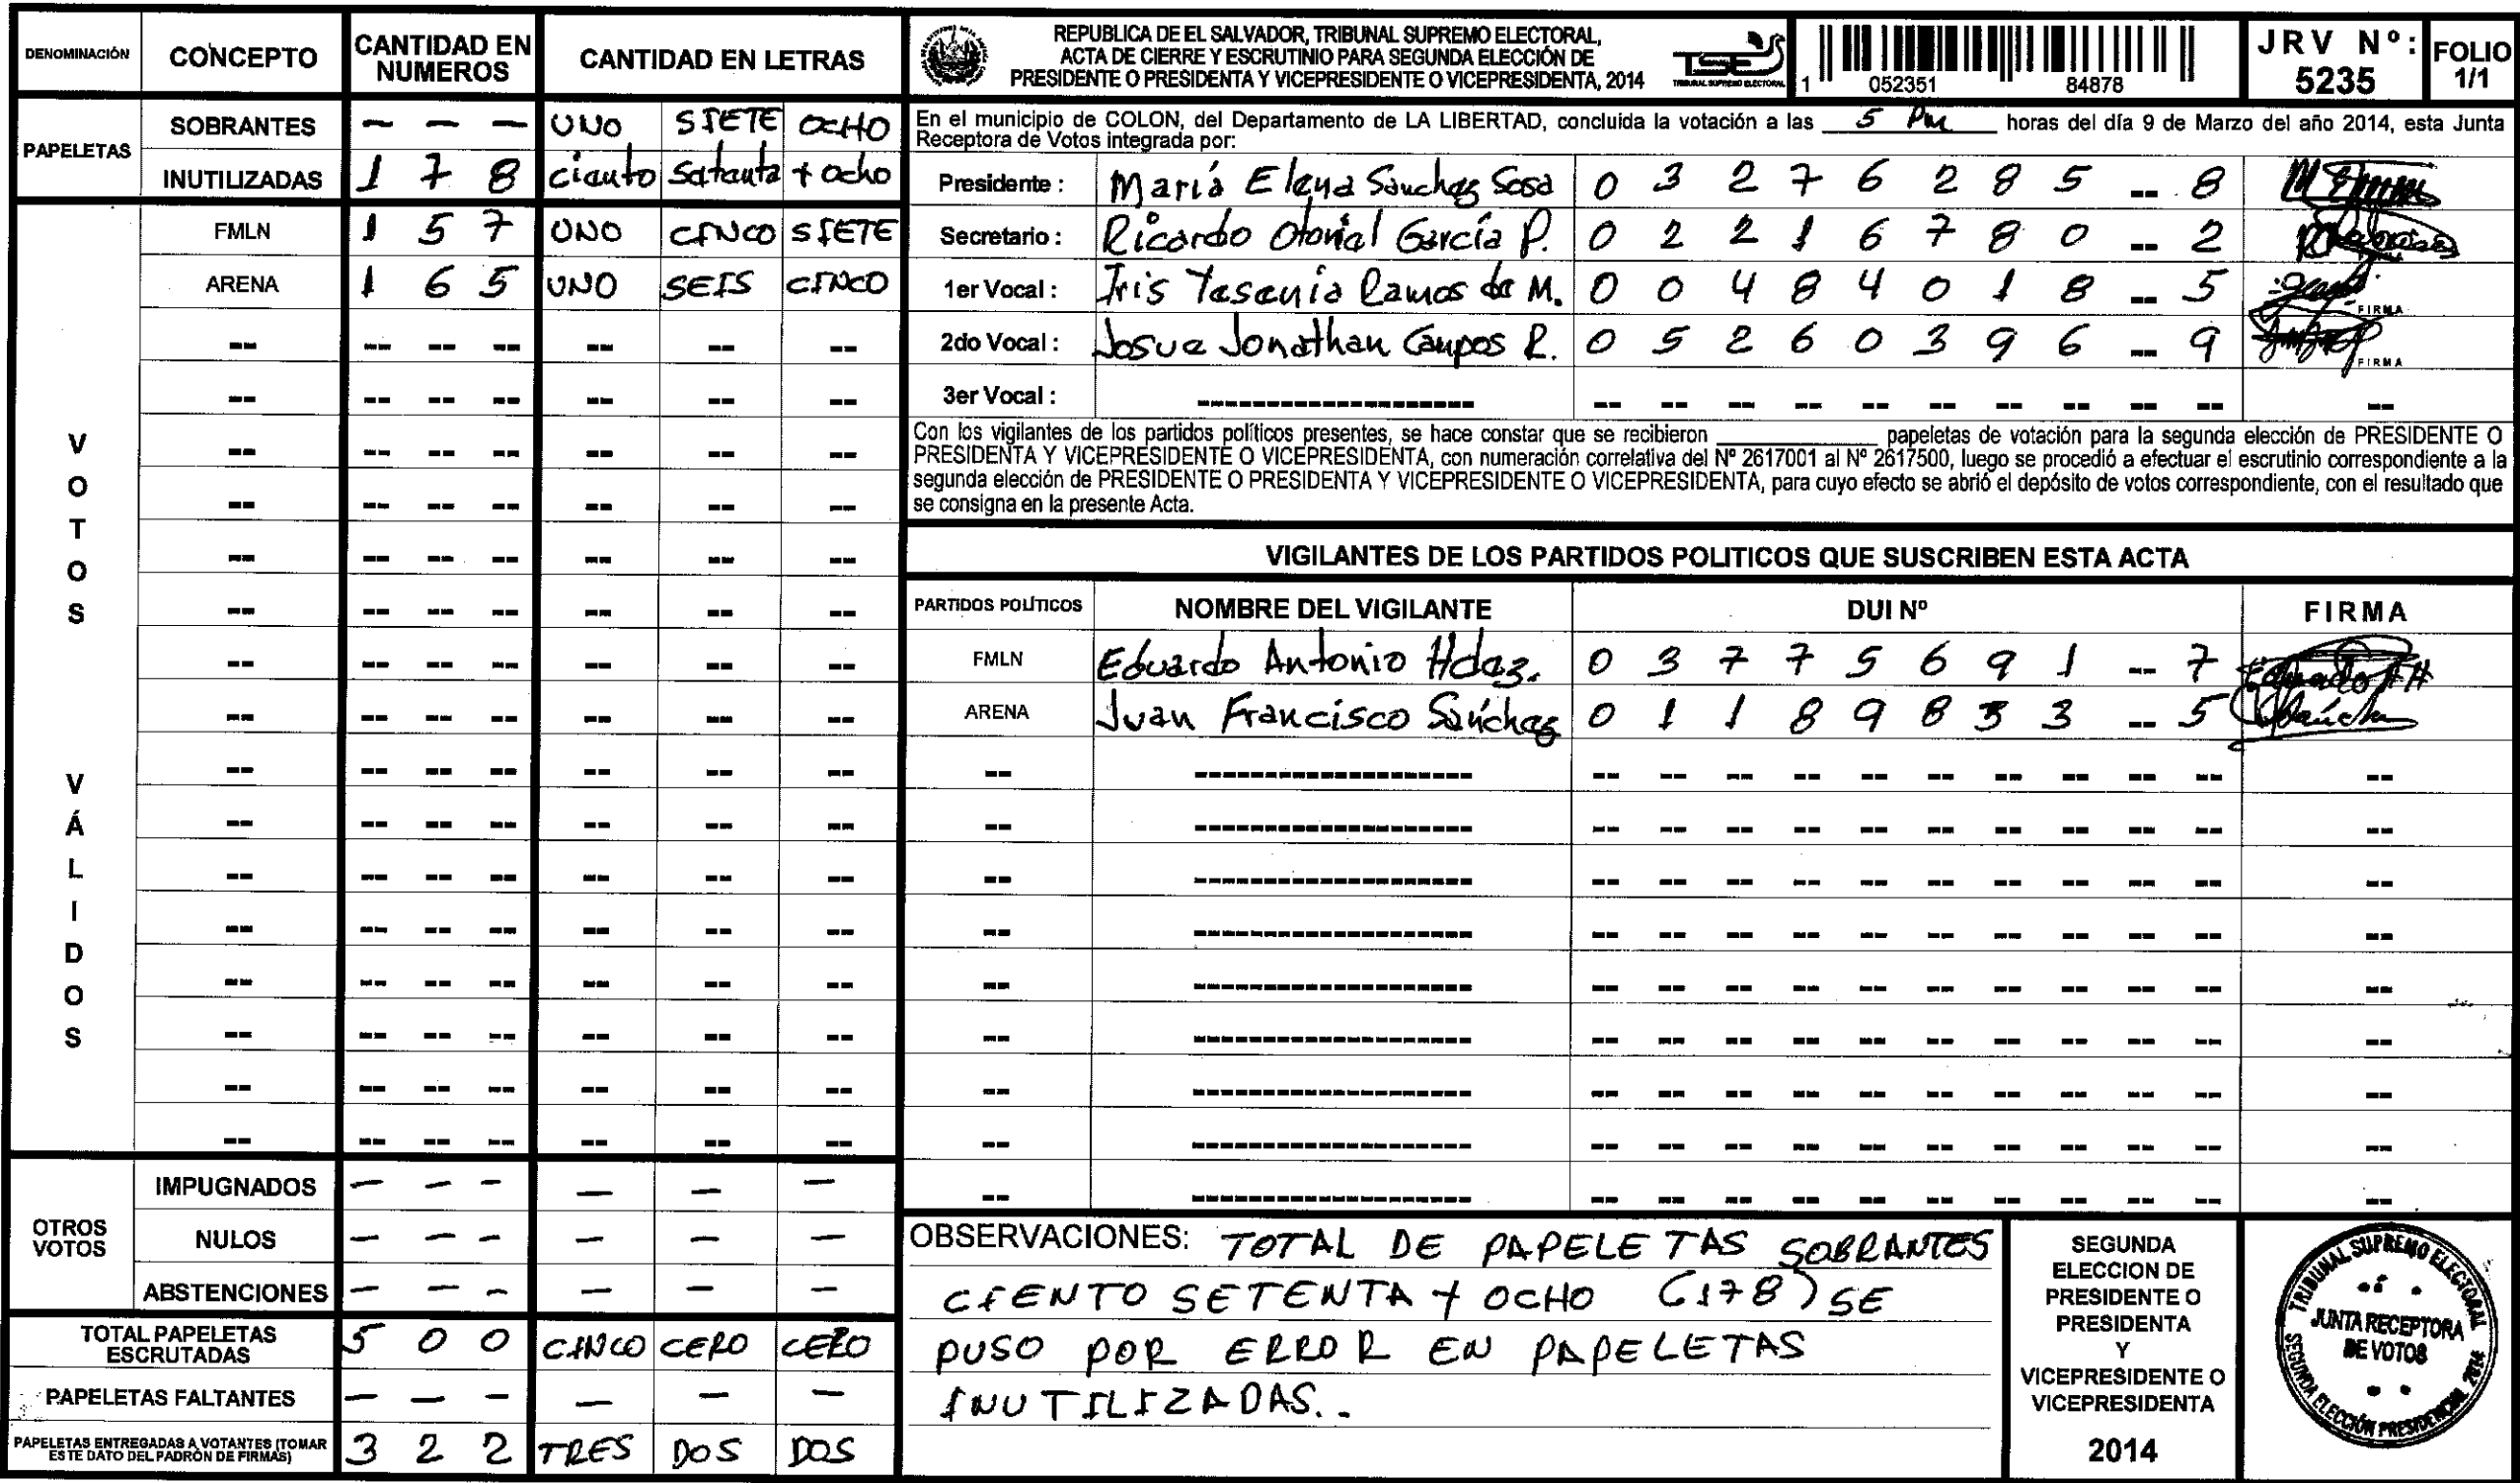 DENOMINACIÓN CONCEPTO CANTIDAD EN NUMEROS CANTIDAD EN LETRAS
PAPELETAS
SOBRANTES - - - UNO SIETE OCHO
INUTILIZADAS 1 7 8 ciento setenta y ocho
VOTOS VÁLIDOS
FMLN 1 5 7 UNO CINCO SIETE
ARENA 1 6 5 UNO SEIS CINCO
OTROS VOTOS
IMPUGNADOS - - - - - -
NULOS - - - - - -
ABSTENCIONES - - - - - -
TOTAL PAPELETAS ESCRUTADAS 5 0 0 CINCO CERO CERO
PAPELETAS FALTANTES - - - - - -
PAPELETAS ENTREGADAS A VOTANTES (TOMAR ESTE DATO DEL PADRÓN DE FIRMAS) 3 2 2 TRES DOS DOS
REPUBLICA DE EL SALVADOR, TRIBUNAL SUPREMO ELECTORAL,
ACTA DE CIERRE Y ESCRUTINIO PARA SEGUNDA ELECCIÓN DE
PRESIDENTE O PRESIDENTA Y VICEPRESIDENTE O VICEPRESIDENTA, 2014
TSE
TRIBUNAL SUPREMO ELECTORAL
1 052351 84878
JRV Nº: 5235
FOLIO 1/1
En el municipio de COLON, del Departamento de LA LIBERTAD, concluida la votación a las 5 Pm horas del día 9 de Marzo del año 2014, esta Junta
Receptora de Votos integrada por:
Presidente : María Elena Sánchez Sosa 0 3 2 7 6 2 8 5 -- 8
Secretario : Ricardo Otonial García P. 0 2 2 1 6 7 8 0 -- 2
1er Vocal : Iris Yasenia Ramos de M. 0 0 4 8 4 0 1 8 -- 5
FIRMA
2do Vocal : Josue Jonathan Campos R. 0 5 2 6 0 3 9 6 -- 9
FIRMA
3er Vocal :
Con los vigilantes de los partidos políticos presentes, se hace constar que se recibieron ____________ papeletas de votación para la segunda elección de PRESIDENTE O
PRESIDENTA Y VICEPRESIDENTE O VICEPRESIDENTA, con numeración correlativa del Nº 2617001 al Nº 2617500, luego se procedió a efectuar el escrutinio correspondiente a la
segunda elección de PRESIDENTE O PRESIDENTA Y VICEPRESIDENTE O VICEPRESIDENTA, para cuyo efecto se abrió el depósito de votos correspondiente, con el resultado que
se consigna en la presente Acta.
VIGILANTES DE LOS PARTIDOS POLITICOS QUE SUSCRIBEN ESTA ACTA
PARTIDOS POLÍTICOS NOMBRE DEL VIGILANTE DUI Nº FIRMA
FMLN Eduardo Antonio Hdez. 0 3 7 7 5 6 9 1 -- 7
ARENA Juan Francisco Sánchez 0 1 1 8 9 8 3 3 -- 5
OBSERVACIONES: TOTAL DE PAPELETAS SOBRANTES
CIENTO SETENTA Y OCHO (178) SE
PUSO POR ERROR EN PAPELETAS
INUTILIZADAS..
SEGUNDA
ELECCION DE
PRESIDENTE O
PRESIDENTA
Y
VICEPRESIDENTE O
VICEPRESIDENTA
2014
TRIBUNAL SUPREMO ELECTORAL
JUNTA RECEPTORA
DE VOTOS
SEGUNDA ELECCIÓN PRESIDENCIAL 2014